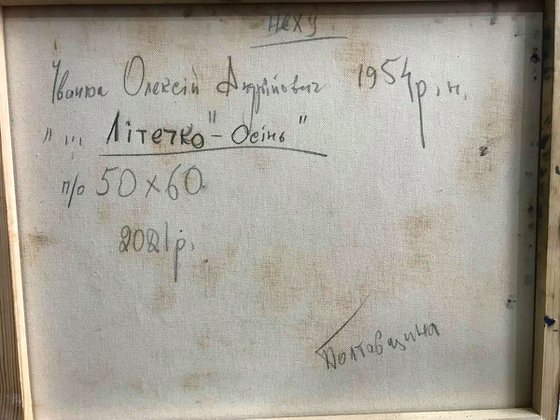 НСХУ
Олексій Андрійович 1954 р.н.
" ... Літечко" - Осінь "
п/о 50х60
2021р.
Полтавщина